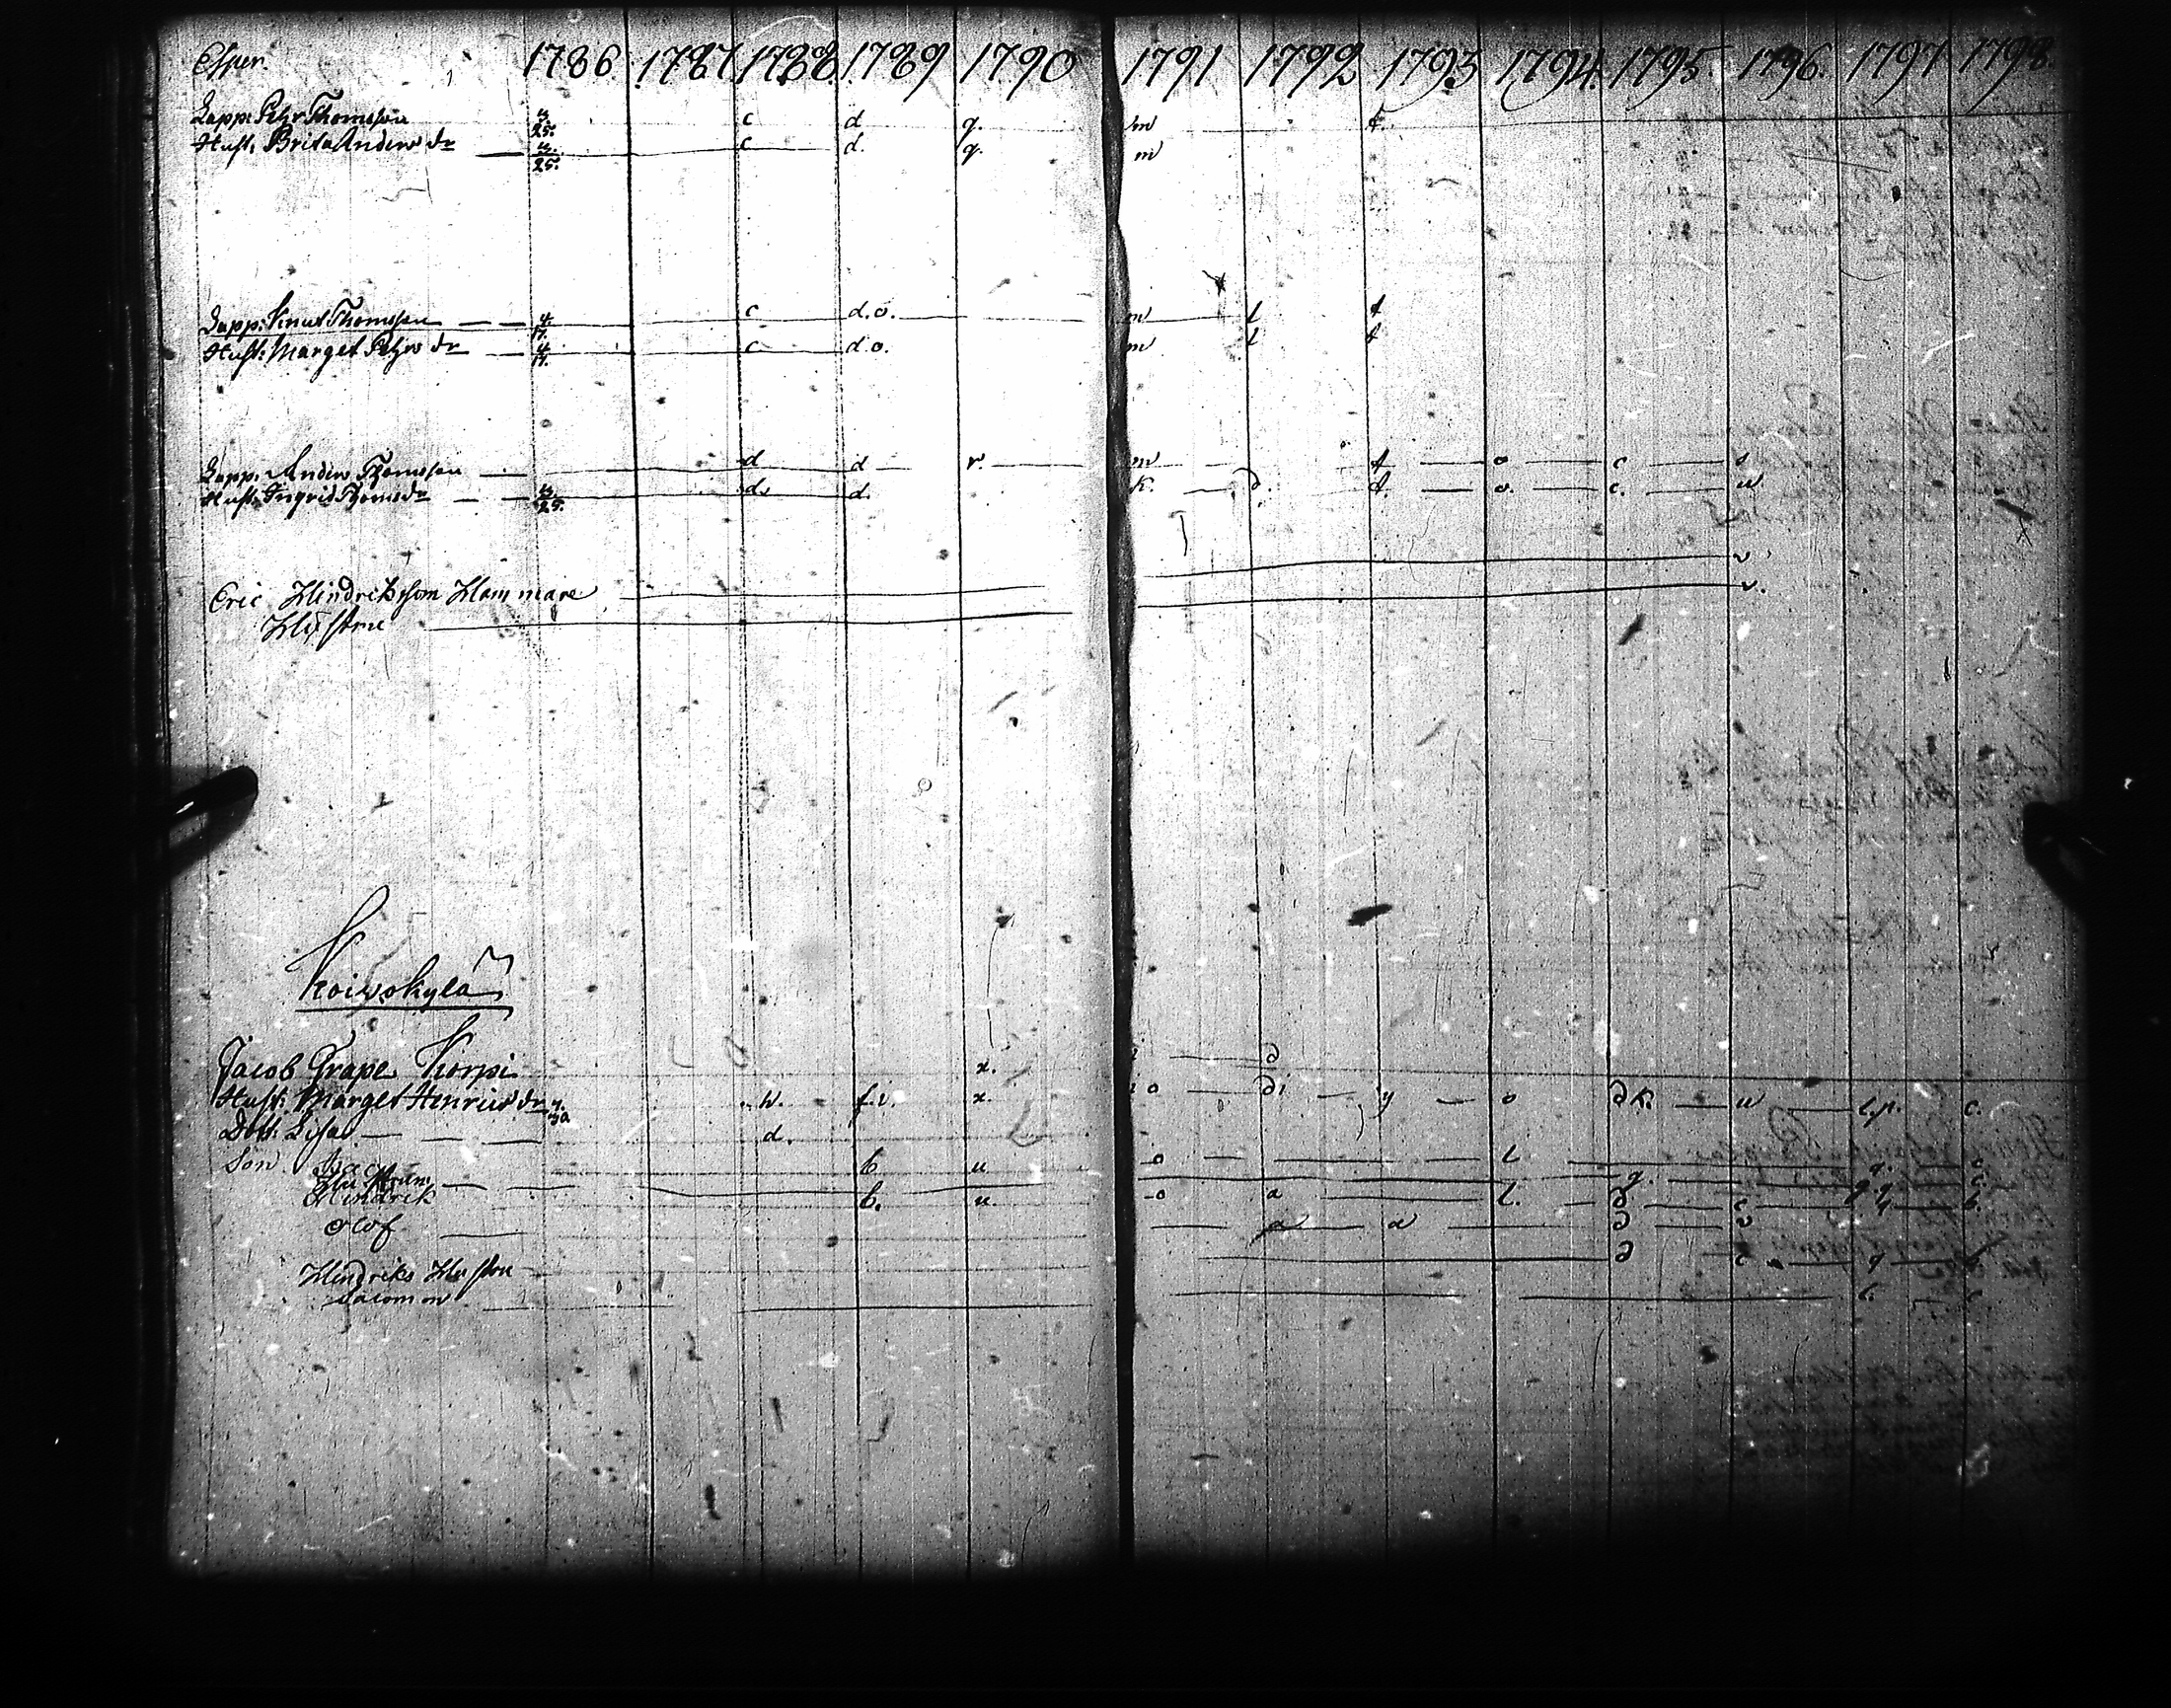 Esper. 1786. 1787 1788. 1789 1790 1791 1792 1793 1794. 1795. 1796. 1797 1798.
Lapp: Pehr Thomsson 4/25. c d q. m t.
Hust. Brita Anders dr 4/25. c d. q. m
Lapp: Knut Thomsson 4/17. c d.o. m l t
Hust: Marget Pehrs dr 4/17. c d.o. m l t
Lapp. Anders Thomsson d d r. m t o c
Hust: Ingrid Thoms dr 4/25. d. d. k. d. t. o. c. u
Eric Hindrichsson Hammare v
Hustru v.
Koivokylä
Jacob Grape Korpi x. d
Hust. Marget Henrics dr w. f.i. x o di y o dk. u l.p. c.
Dott. Lisa d.
Son Isac b u o l q. c
Hustrun g. q c
Hindrik b. u. o a l. d c q b.
Olof a a d v
Hindriks Hustru d c q
Salomon c